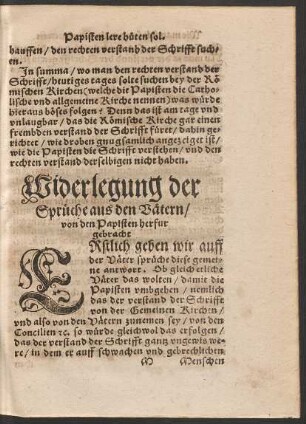 Papisten lere hüten sol.
hauffen / den rechten verstand der Schrifft such-
en.
In summa / wo man den rechten verstand der
Schriffe / heutiges tages solte suchen bey der Rö
mischen Kirchen (welche die Papisten die Catho-
lische vnd allgemeine Kirche nennen) was würde
hieraus böses folgen? Denn das ist am tage vnd
vnlaugbar / das die Römische Kirche gar einen
frembden verstand der Schrifft füret / dahin ge-
richtet / wie droben gnugsamlich angezeiget ist /
wie die Papisten die Schrifft verstehen / vnd den
rechten verstand derselbigen nicht haben.
Widerlegung der
Sprüche aus den Vätern /
von den Papisten herfur
gebracht
ERstlich geben wir auff
der Väter sprüche diese gemei-
ne antwort. Ob gleich etliche
Väter das wolten / damit die
Papisten vmbgehen / nemlich
das der verstand der Schrifft
von der Gemeinen Kirchen /
vnd also von den Vätern zunemen sey / von den
Concilien ꝛc. so würde gleichwol das erfolgen /
das der verstand der Schrifft gantz vngewis we-
re / in dem er auff schwachen vnd gebrechlichen
M Menschen